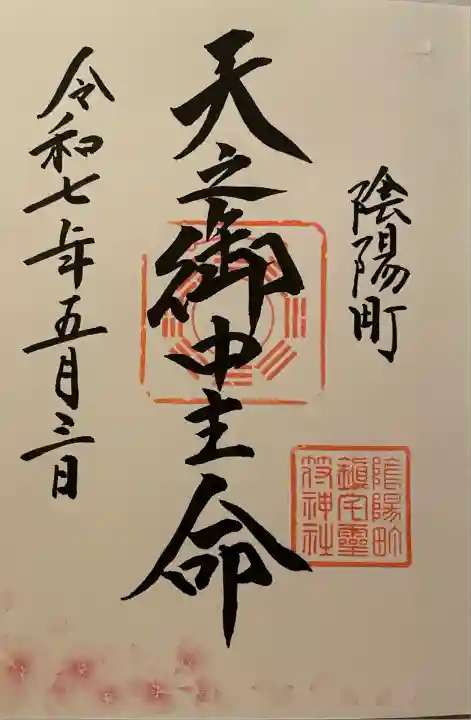 陰陽町
陰陽町
鎮宅霊
符神社
天之御中主命
令和七年五月三日